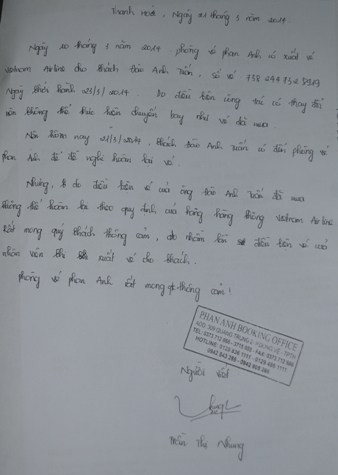 Thanh Hoá, Ngày 21 tháng 3 năm 2017.
Ngày 20 tháng 3 năm 2017. phòng vé phan Anh có xuất vé
vietnam Airline cho khách Đào Anh Tuấn, số vé: 738
Ngày khởi hành 21/3/2017. Do điều kiện công tác có thay đổi
nên không thể thực hiện chuyến bay như vé đã mua
Nên hôm nay 21/3/2017. khách Đào Anh Tuấn có đến phòng vé
phan Anh để đề nghị hoàn lại vé.
Nhưng, do điều kiện vé của ông Đào Anh Tuấn đã mua
không thể hoàn lại theo quy định của hãng hàng không Vietnam Airline
Rất mong quý khách thông cảm, do nhầm lẫn điều kiện vé của
nhân viên khi xuất vé cho khách.
phòng vé phan Anh rất mong thông cảm!
PHAN ANH BOOKING OFFICE
ADD: QUANG TRUNG
HOTLINE:
Người viết
Nhung
Thị Nhung